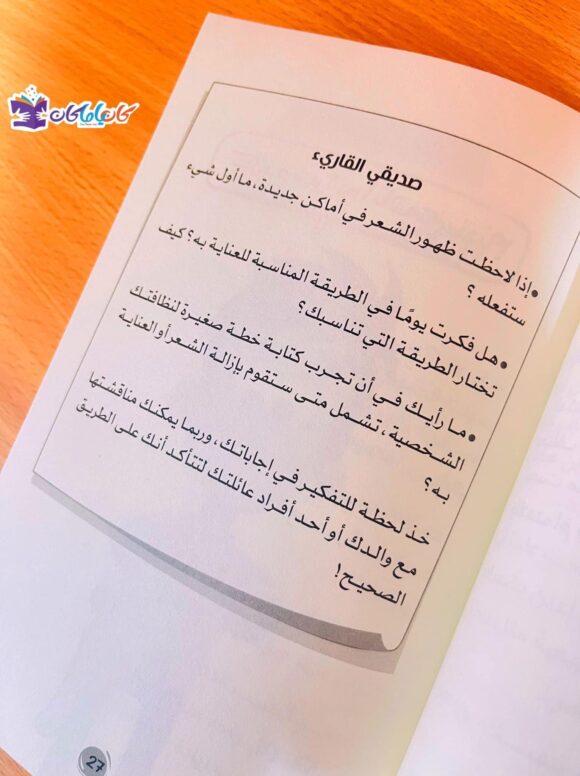 كان ياما كان
صديقي القاريء
• إذا لاحظت ظهور الشعر في أماكن جديدة، ما أول شيء
ستفعله ؟
• هل فكرت يومًا في الطريقة المناسبة للعناية به؟ كيف
تختار الطريقة التي تناسبك؟
• ما رأيك في أن تجرب كتابة خطة صغيرة لنظافتك
الشخصية، تشمل متى ستقوم بإزالة الشعر أو العناية
به؟
خذ لحظة للتفكير في إجاباتك، وربما يمكنك مناقشتها
مع والدك أو أحد أفراد عائلتك لتتأكد أنك على الطريق
الصحيح!
27